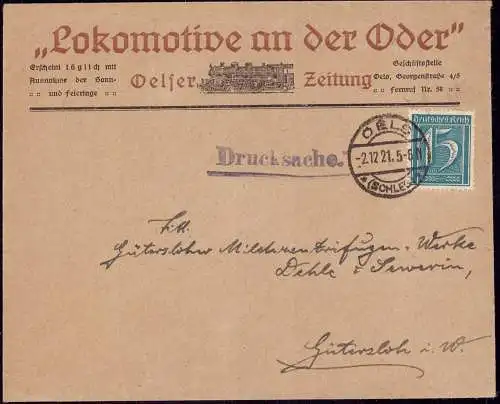 „Lokomotive an der Oder"
Erscheint täglich mit
Ausnahme der Sonn-
:: und Feiertage ::
Oelser Zeitung
Geschäftsstelle
Oels, Georgenstraße 4/5
:: Fernruf Nr. 50 ::
Drucksache.
OELS
-2.12 21. 5-6
* (SCHLES
Deutsches Reich
15
Gütersloher Milchzentrifugen-Werke
Dehle & Sewerin,
Gütersloh i. W.